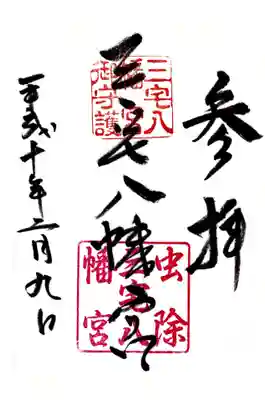 参拝
三宅八幡宮
平成十年二月九日
三宅八
幡宮
御守護
虫除
三宅八
幡宮